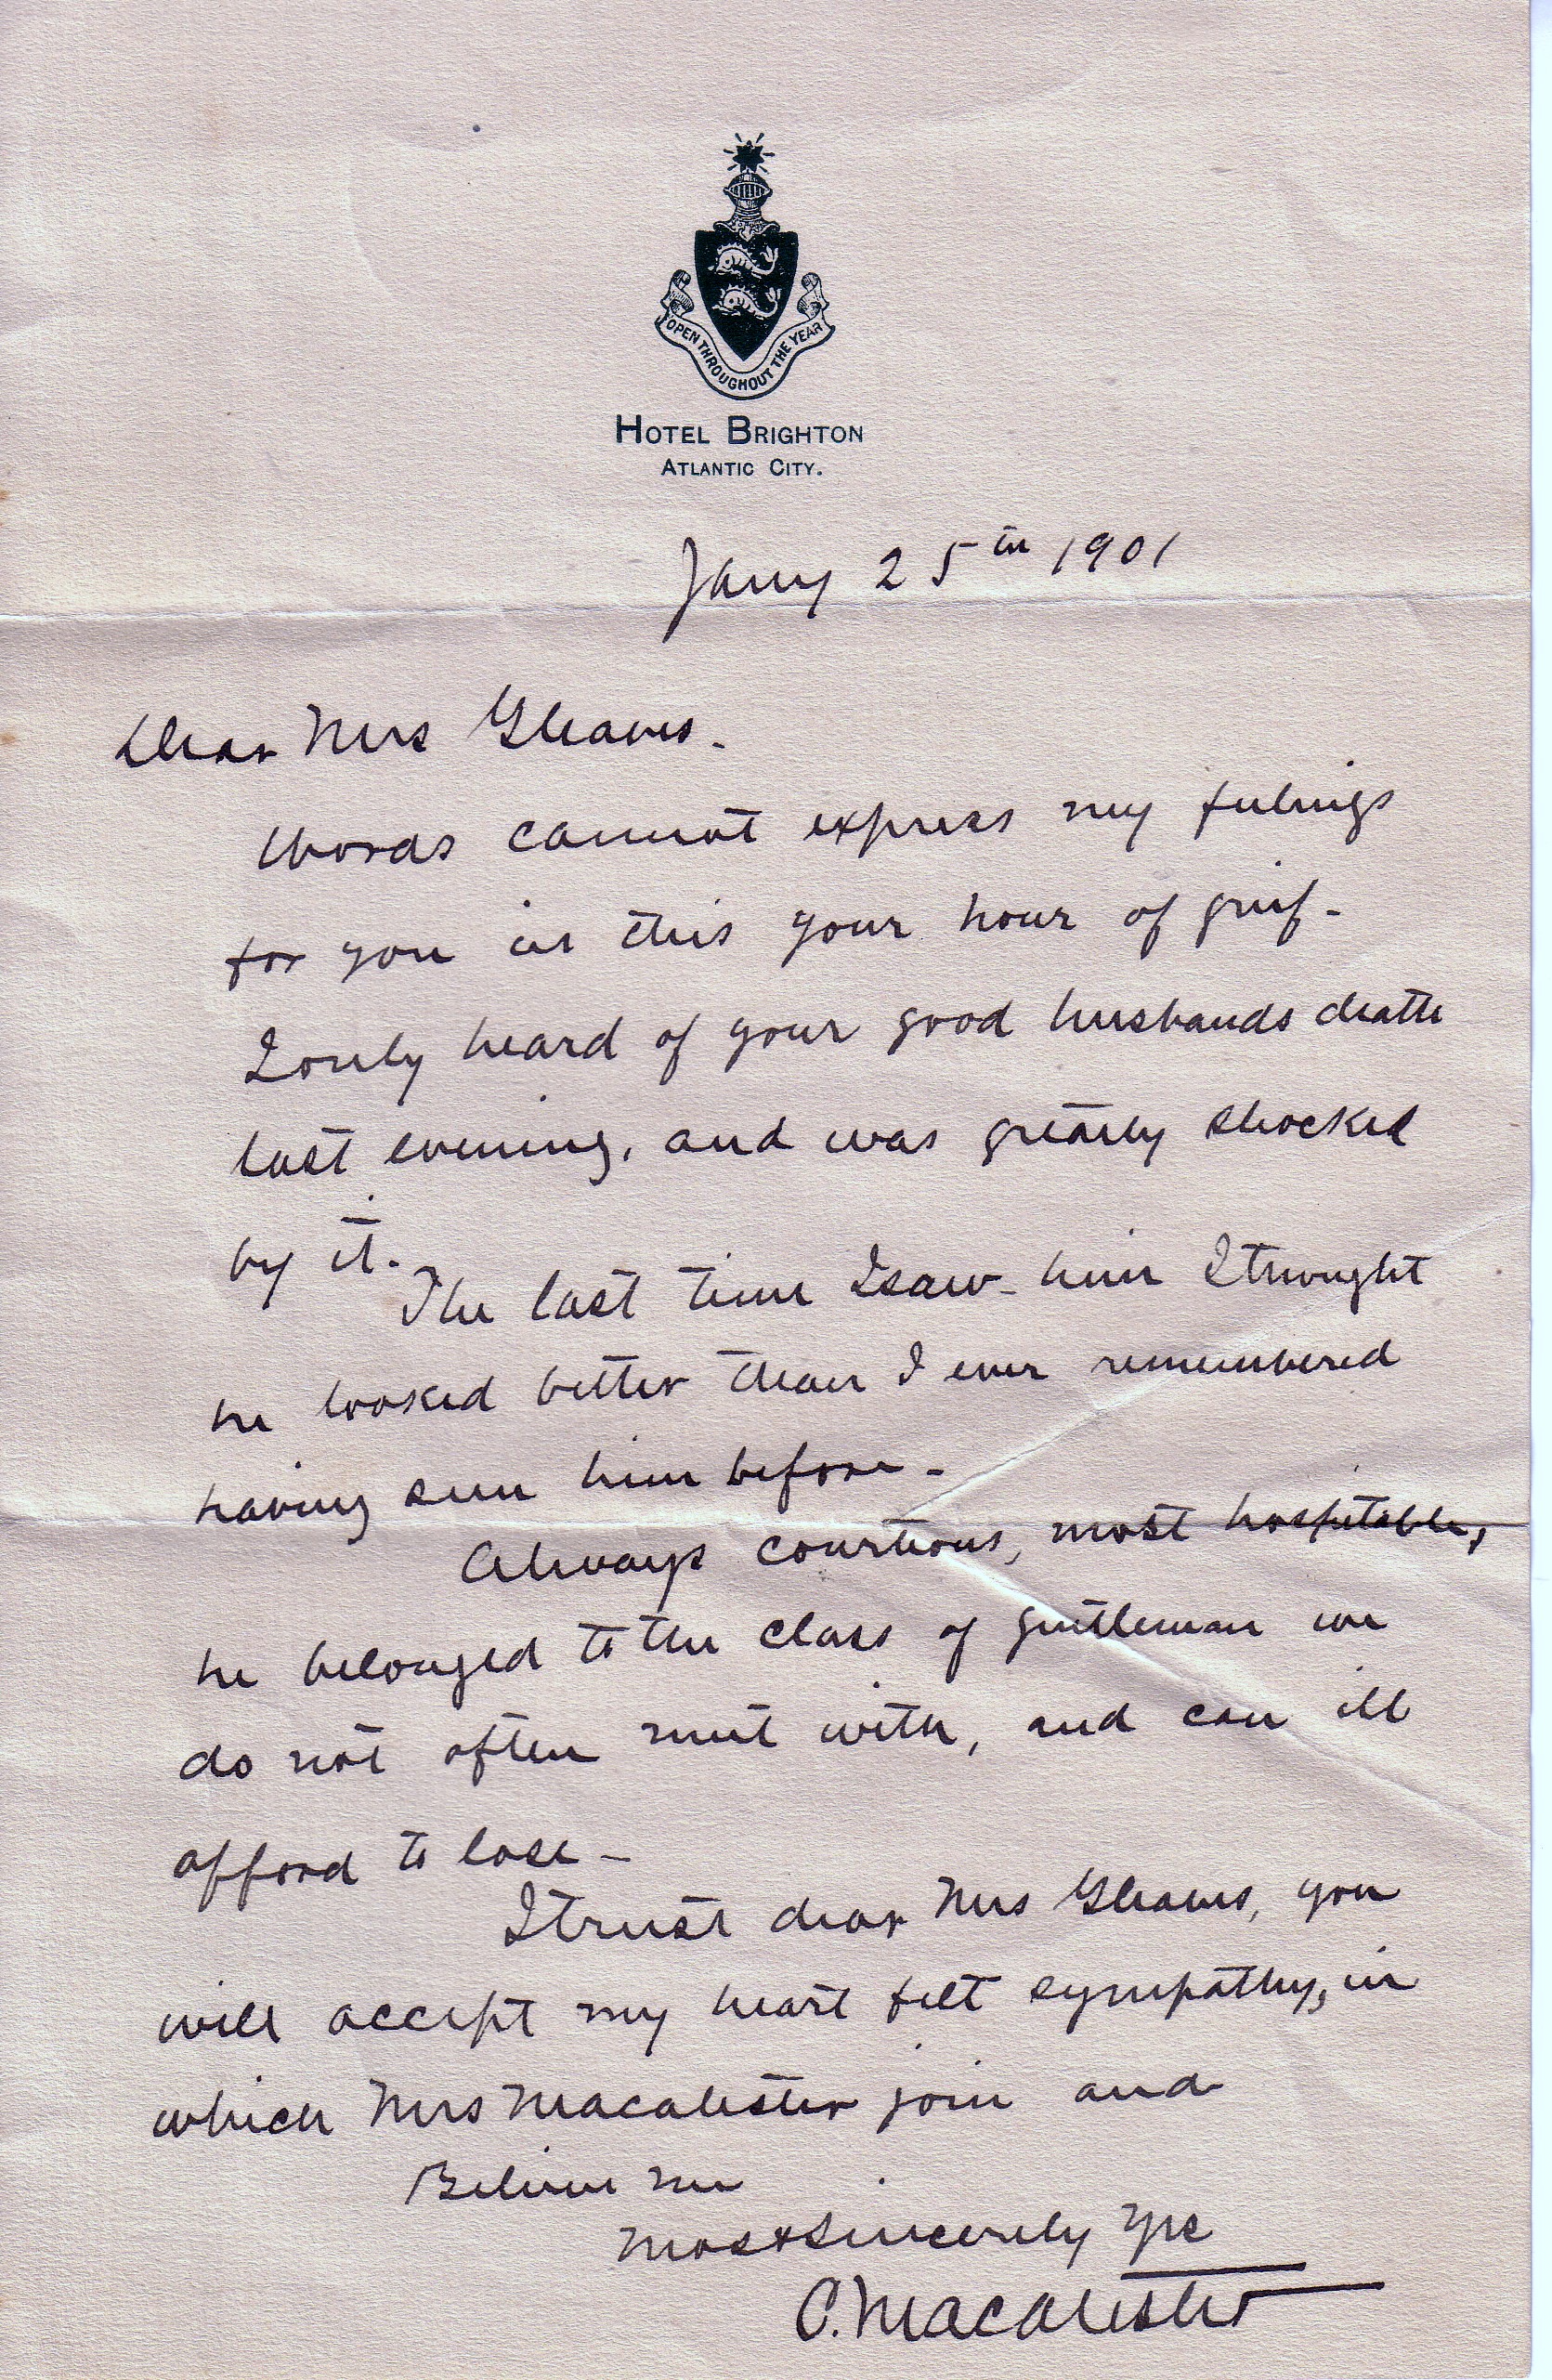 OPEN THROUGHOUT THE YEAR
HOTEL BRIGHTON
ATLANTIC CITY.
Jany 25th 1901
Dear Mrs Gleaves.
Words cannot express my feelings
for you in this your hour of grief -
I only heard of your good husbands death
last evening, and was greatly shocked
by it.
The last time I saw him I thought
he looked better than I ever remembered
having seen him before -
Always courteous, most hospitable,
he belonged to the class of gentleman we
do not often meet with, and can ill
afford to lose -
I trust dear Mrs Gleaves, you
will accept my heart felt sympathy, in
which Mrs Macalester join and
Believe me
Most Sincerely Yrs
C. Macalester